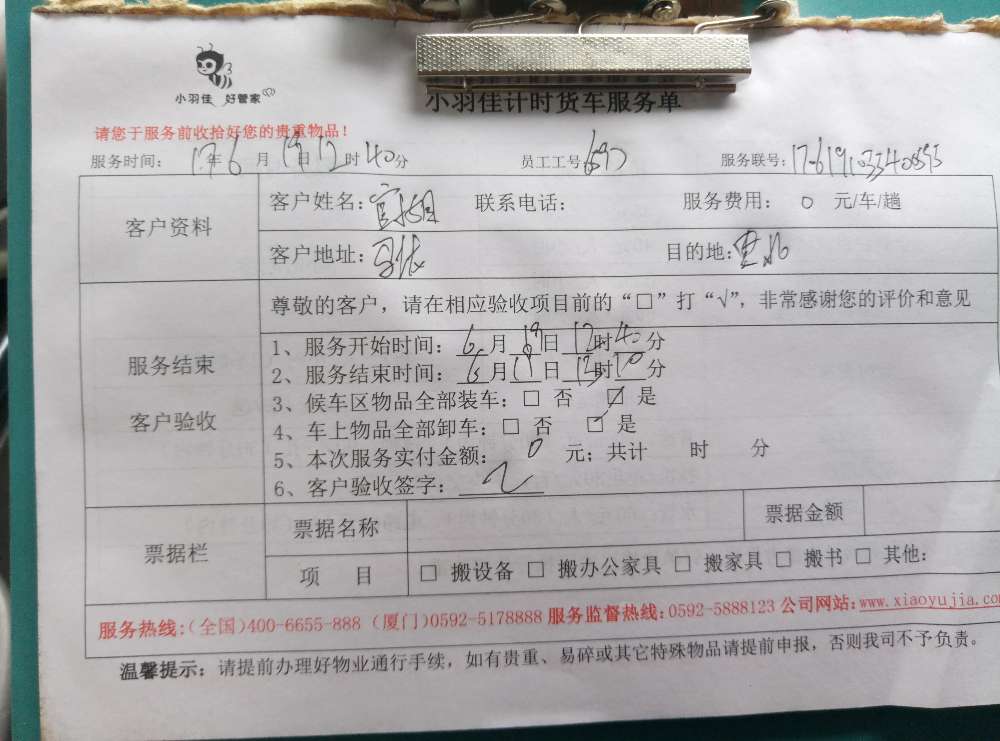 小羽佳 好管家
小羽佳计时货车服务单
请您于服务前收拾好您的贵重物品！
服务时间： 17年6月19日12时40分 员工工号 服务联号：
客户资料
客户姓名： 联系电话： 服务费用： 0 元/车/趟
客户地址： 目的地：
服务结束
客户验收
尊敬的客户，请在相应验收项目前的“□”打“√”，非常感谢您的评价和意见
1、服务开始时间：6月19日12时40分
2、服务结束时间：6月 日 时10分
3、候车区物品全部装车：□ 否 ☑ 是
4、车上物品全部卸车：□ 否 ☑ 是
5、本次服务实付金额： 0 元；共计 时 分
6、客户验收签字：
票据栏
票据名称 票据金额
项 目 □ 搬设备 □ 搬办公家具 □ 搬家具 □ 搬书 □ 其他：
服务热线：（全国）400-6655-888（厦门）0592-5178888 服务监督热线：0592-5888123 公司网站：www.xiaoyujia.com
温馨提示：请提前办理好物业通行手续，如有贵重、易碎或其它特殊物品请提前申报，否则我司不予负责。